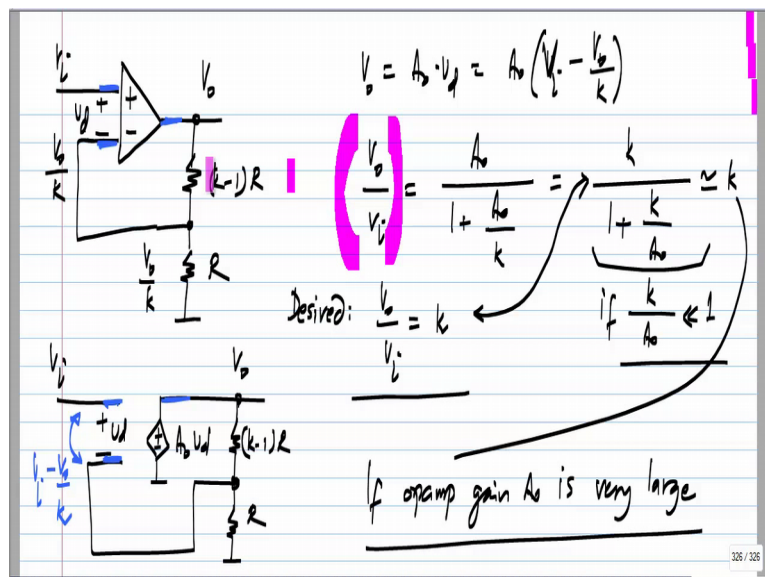 Vi
Vo
+
+
vd
-
-
Vo/k
(k-1)R
Vo/k
R
Vo = Ao·vd = Ao(Vi - Vo/k)
(Vo/Vi) = Ao/(1 + Ao/k) = k/(1 + k/Ao) ≃ k
if k/Ao ≪ 1
Desired: Vo/Vi = k
Vi
Vo
+
vd
-
Vi - Vo/k
+
-
Ao vd
(k-1)R
R
If opamp gain Ao is very large
326 / 326